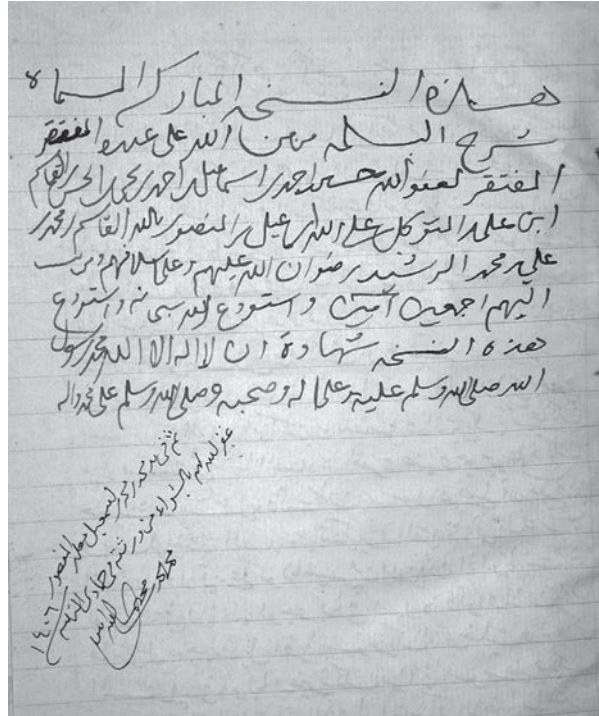 هذه النسخه المباركه المسماه
شرح السلم من من الله على عبده المفتقر
المفتقر لعفو الله حسين احمد اسماعيل احمد محمد الحسن القاسم
ابن علي المتوكل على الله اسماعيل بن المنصور بالله القاسم بن محمد بن
علي بن محمد الرشيد رضوان الله عليهم وعلى سلافهم ومن نسب
اليهم اجمعين امين واستودع الله سبحانه واستودع
هذه النسخه شهادة ان لا اله الا الله محمد رسول
الله صلى الله وسلم عليه وعلى اله وصحبه وصلى الله وسلم على محمد واله
ثم محمد بن اسمعيل المنصور
غفر الله لهم بالشراء من جمادى
١٤٠٦
محمد محمد